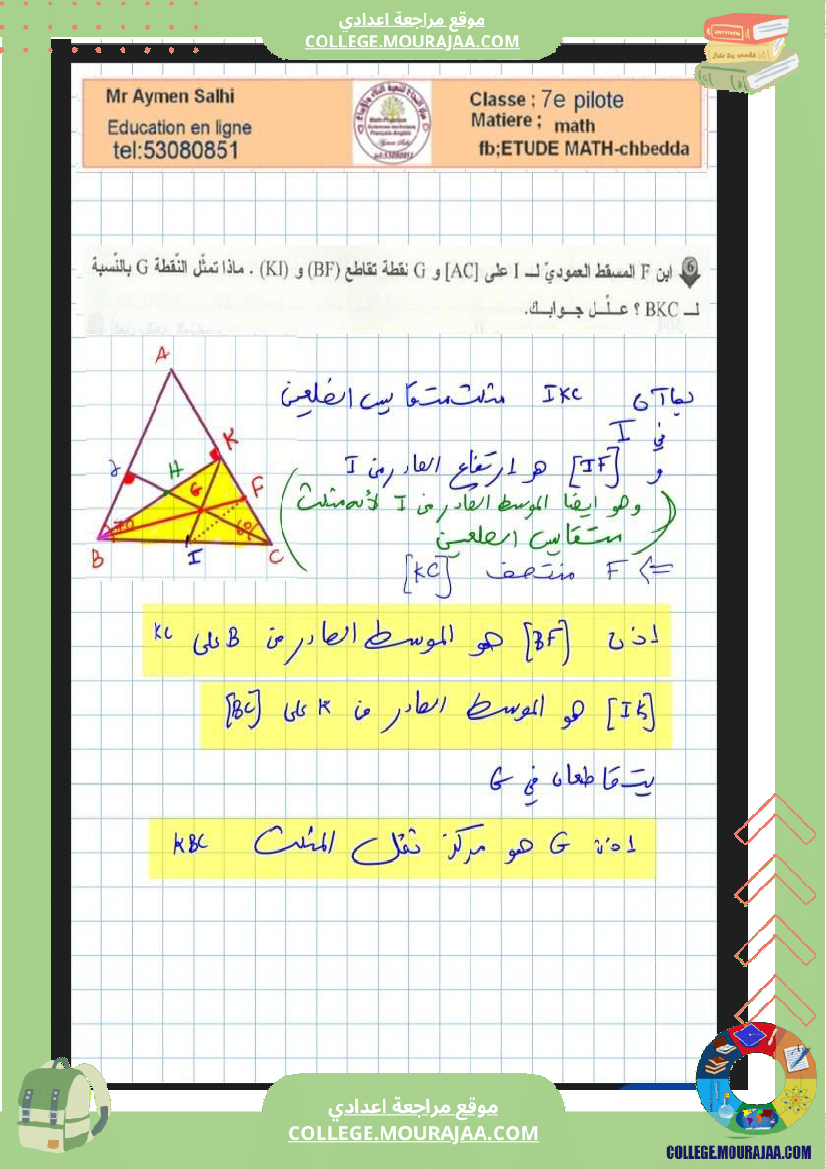 موقع مراجعة اعدادي
COLLEGE.MOURAJAA.COM
Mr Aymen Salhi
Education en ligne
tel:53080851
Classe ; 7e pilote
Matiere ; math
fb;ETUDE MATH-chbedda
6 ابن F المسقط العموديّ لـ I على [AC] و G نقطة تقاطع (BF) و (KI) . ماذا تمثّل النّقطة G بالنّسبة
لـ BKC ؟ علّل جوابك.
A
K
H
G
F
B
I
C
بما أن IKC مثلث متقايس الضلعين
في I
و [IF] هو ارتفاع الصادر من I
(وهو ايضا الموسط الصادر من I لأنه مثلث
متقايس الضلعين)
=> F منتصف [KC]
اذن [BF] هو الموسط الصادر من B على KC
[IK] هو الموسط الصادر من K على [BC]
يتقاطعان في G
اذن G هو مركز ثقل المثلث KBC
موقع مراجعة اعدادي
COLLEGE.MOURAJAA.COM
COLLEGE.MOURAJAA.COM